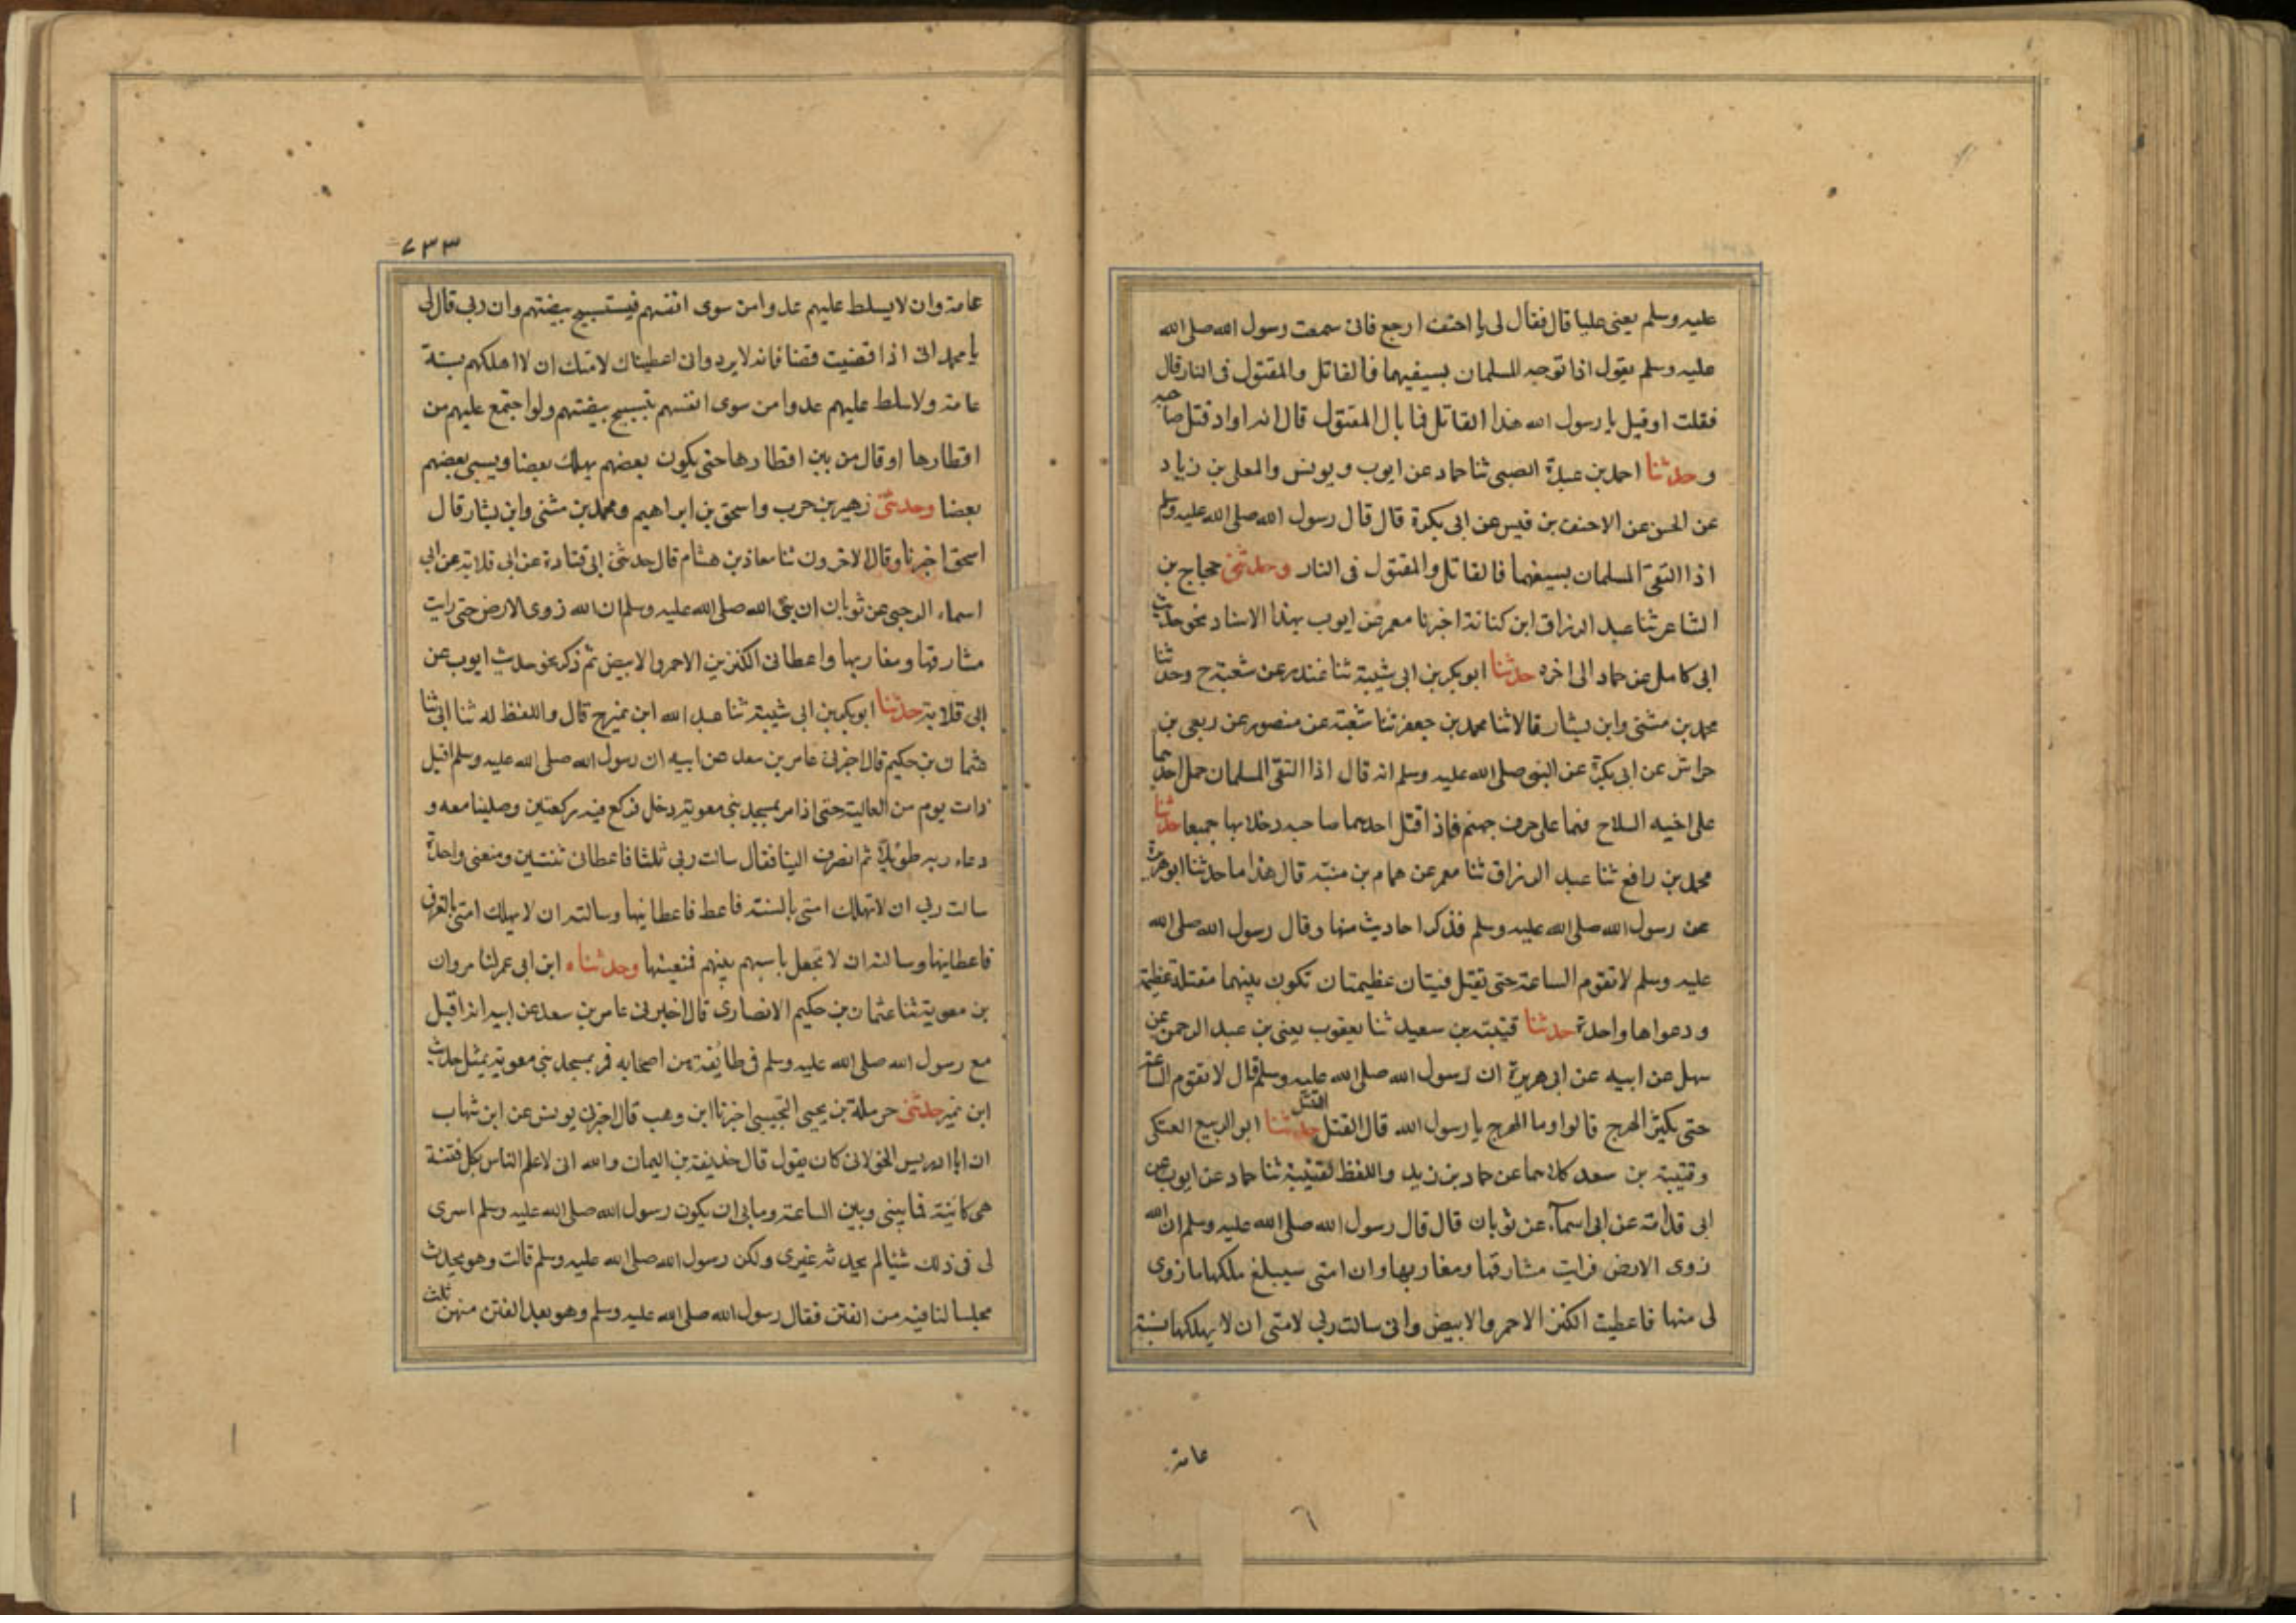 عليه وسلم يعنى عليا قال فقال لى يا احنف ارجع فانى سمعت رسول الله صلى الله
عليه وسلم يقول اذا توجه المسلمان بسيفيهما فالقاتل والمقتول فى النار قال
فقلت او قيل يا رسول الله هذا القاتل فما بال المقتول قال انه اراد قتل صاحبه
و حدثنا احمد بن عبدة الضبى ثنا حماد عن ايوب و يونس والمعلى بن زياد
عن الحسن عن الاحنف بن قيس عن ابى بكرة قال قال رسول الله صلى الله عليه وسلم
اذا التقى المسلمان بسيفهما فالقاتل والمقتول فى النار وحدثنى حجاج بن
الشاعر ثنا عبد الرزاق ابن كنانة اخبرنا معمر عن ايوب بهذا الاسناد نحو حديث
ابى كامل عن حماد الى اخره حدثنا ابو بكر بن ابى شيبة ثنا غندر عن شعبة ح وحدثنا
محمد بن مثنى وابن بشار قالا ثنا محمد بن جعفر ثنا شعبة عن منصور عن ربعى بن
حراش عن ابى بكرة عن النبى صلى الله عليه وسلم انه قال اذا التقى المسلمان حمل احدهما
على اخيه السلاح فهما على جرف جهنم فاذا قتل احدهما صاحبه دخلا بها جميعا حدثنا
محمد بن رافع ثنا عبد الرزاق ثنا معمر عن همام بن منبه قال هذا ما حدثنا ابو هريرة
عن رسول الله صلى الله عليه وسلم فذكر احاديث منها وقال رسول الله صلى الله
عليه وسلم لا تقوم الساعة حتى تقتل فئتان عظيمتان تكون بينهما مقتلة عظيمة
ودعواها واحدة حدثنا قتيبة بن سعيد ثنا يعقوب يعنى بن عبد الرحمن عن
سهل عن ابيه عن ابى هريرة ان رسول الله صلى الله عليه وسلم قال لا تقوم الساعة
حتى يكثر الهرج قالوا وما الهرج يا رسول الله قال القتل القتل حدثنا ابو الربيع العتكى
وقتيبة بن سعد كلاهما عن حماد بن زيد واللفظ لقتيبة ثنا حماد عن ايوب عن
ابى قلابة عن ابى اسماء عن ثوبان قال قال رسول الله صلى الله عليه وسلم ان الله
زوى الارض فرايت مشارقها ومغاربها وان امتى سيبلغ ملكها ما زوى
لى منها فاعطيت الكنز الاحمر والابيض وانى سالت ربى لامتى ان لا يهلكها بسنة
عامة
٦
٧٣٣
عامة وان لا يسلط عليهم عدوا من سوى انفسهم فيستبيح بيضتهم وان ربى قال لى
يا محمد انى اذا قضيت قضا فانه لا يرد وانى اعطيناك لامتك ان لا اهلكهم بسنة
عامة ولا سلط عليهم عدوا من سوى انفسهم يستبيح بيضتهم ولو اجتمع عليهم من
اقطارها او قال من بين اقطارها حتى يكون بعضهم يهلك بعضا ويسبى بعضهم
بعضا وحدثنى زهير بن حرب واسحق بن ابراهيم ومحمد بن مثنى وابن بشار قال
اسحق اخبرنا وقال الاخرون ثنا معاذ بن هشام قال حدثنى ابى قتادة عن ابى قلابة عن ابى
اسماء الرحبى عن ثوبان ان نبى الله صلى الله عليه وسلم ان الله زوى الارض حتى رايت
مشارقها ومغاربها واعطانى الكنزين الاحمر والابيض ثم ذكر نحو حديث ايوب عن
ابى قلابة حدثنا ابو بكر بن ابى شيبة ثنا عبد الله ابن نمير ح قال واللفظ له ثنا ابى ثنا
عثمان بن حكيم قال اخبرنى عامر بن سعد عن ابيه ان رسول الله صلى الله عليه وسلم اقبل
ذات يوم من العالية حتى اذا مر بمسجد بنى معوية دخل فركع فيه ركعتين وصلينا معه و
دعاء ربه طويلا ثم انصرف الينا فقال سالت ربى ثلثا فاعطانى ثنتين ومنعنى واحدة
سالت ربى ان لا تهلك امتى بالسنة فاعط فاعطانيها وسالته ان لا يهلك امتى بالغرق
فاعطانيها وسالته ان لا تجعل باسهم بينهم فمنعيتها وحدثناه ابن ابى عمر ثنا مروان
بن معوية ثنا عثمان بن حكيم الانصارى قال اخبرنى عامر بن سعد عن ابيه انه اقبل
مع رسول الله صلى الله عليه وسلم فى طائفة من اصحابه فمر بمسجد بنى معوية بمثل حديث
ابن نمير حدثنى حرملة بن يحيى التجيبى اخبرنا ابن وهب قال اخبرنى يونس عن ابن شهاب
ان ابا ادريس الخولانى كان يقول قال حذيفة بن اليمان والله انى لاعلم الناس بكل فتنة
هى كائنة فما بينى وبين الساعة وما بى ان يكون رسول الله صلى الله عليه وسلم اسرى
لى فى ذلك شيئا لم يحدثه غيرى ولكن رسول الله صلى الله عليه وسلم قالت وهو يحدث
مجلسا لنا فيه من الفتن فقال رسول الله صلى الله عليه وسلم وهو يعد الفتن منهن ثلث